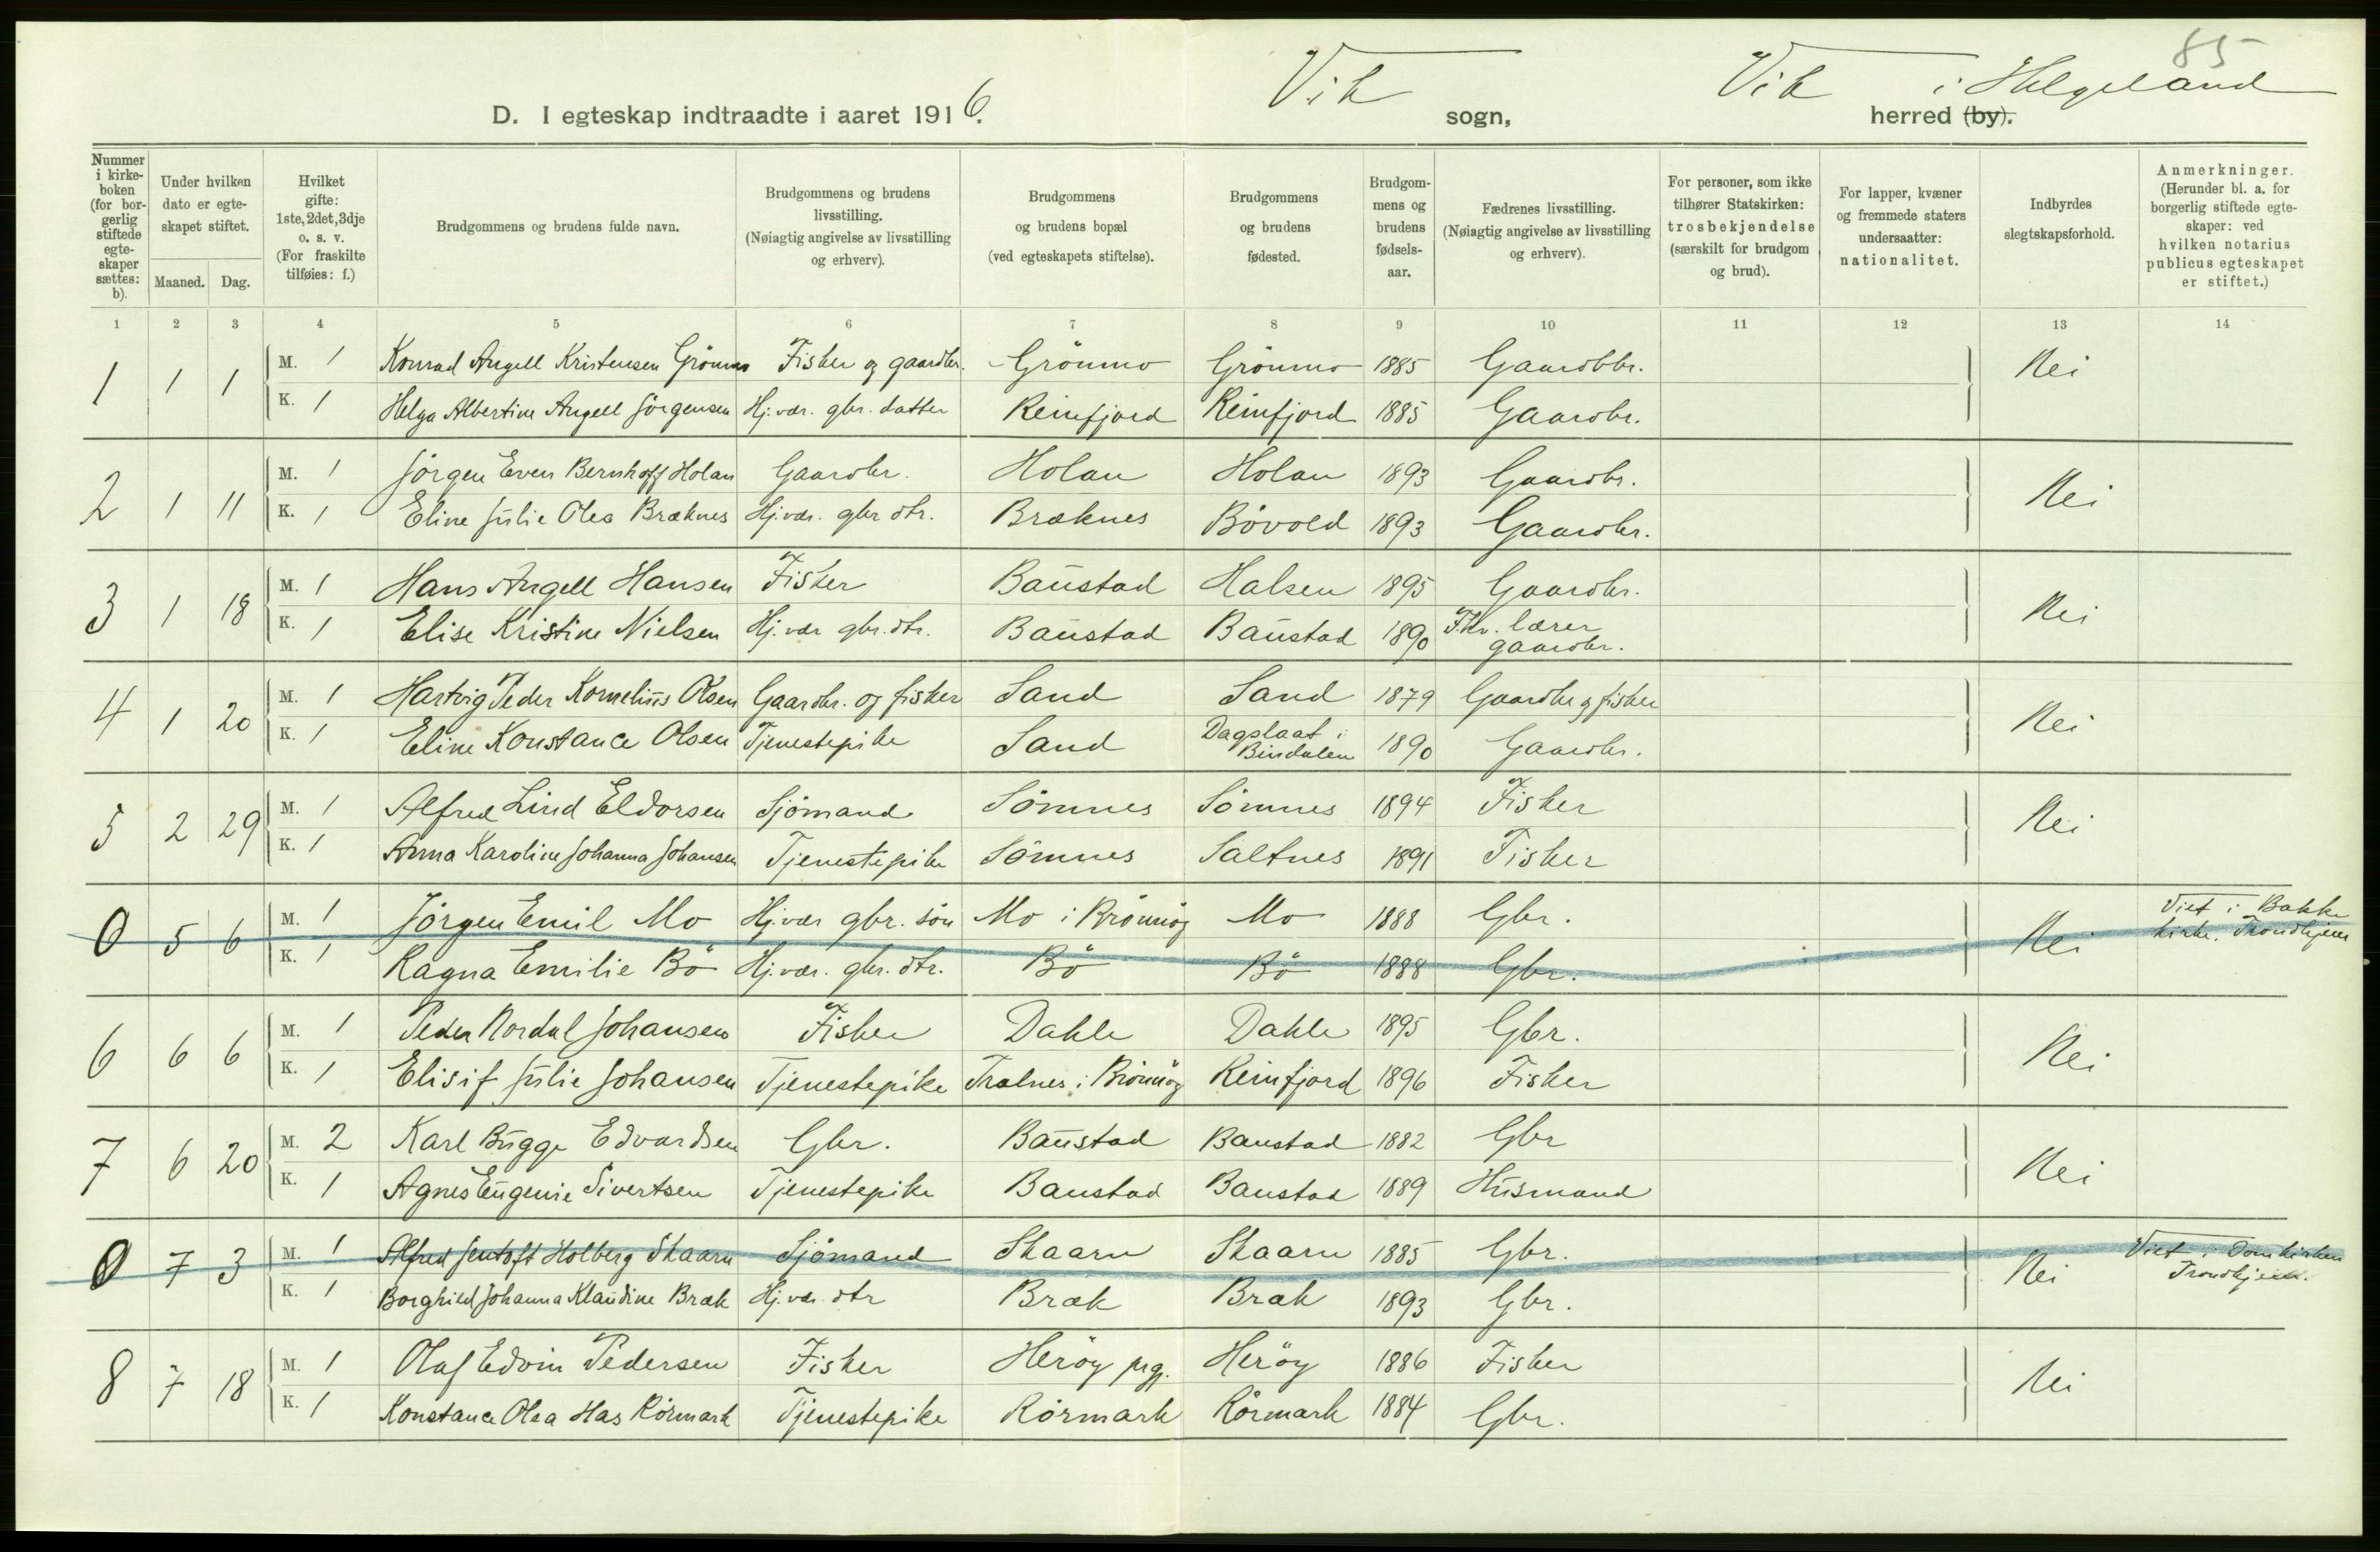 85
D. I egteskap indtraadte i aaret 1916. Vik sogn, Vik i Helgeland herred (by).
Nummer i kirke-boken (for bor-gerlig stiftede egte-skaper sættes: b).
Under hvilken dato er egte-skapet stiftet.
Maaned. Dag.
Hvilket gifte: 1ste, 2det, 3dje o. s. v. (For fraskilte tilføies: f.)
Brudgommens og brudens fulde navn.
Brudgommens og brudens livsstilling. (Nøiagtig angivelse av livsstilling og erhverv).
Brudgommens og brudens bopæl (ved egteskapets stiftelse).
Brudgommens og brudens fødested.
Brudgom-mens og brudens fødsels-aar.
Fædrenes livsstilling. (Nøiagtig angivelse av livsstilling og erhverv).
For personer, som ikke tilhører Statskirken: trosbekjendelse (særskilt for brudgom og brud).
For lapper, kvæner og fremmede staters undersaatter: nationalitet.
Indbyrdes slegtskapsforhold.
Anmerkninger. (Herunder bl. a. for borgerlig stiftede egte-skaper: ved hvilken notarius publicus egteskapet er stiftet.)
1 2 3 4 5 6 7 8 9 10 11 12 13 14
1 1 1 M. 1 Konrad Angell Kristensen Grönmo Fisker og gaardbr. Grönmo Grönmo 1885 Gaardbr. Nei
K. 1 Helga Albertine Angell Jörgensen Hj. vær. gbr. datter Reinfjord Reinfjord 1885 Gaardbr.
2 1 11 M. 1 Jörgen Even Bernhoff Holan Gaardbr. Holan Holan 1893 Gaardbr. Nei
K. 1 Eline Julie Olea Bræknes Hj. vær. gbr dtr. Bræknes Bövold 1893 Gaardbr.
3 1 18 M. 1 Hans Angell Hansen Fisker Baustad Halsen 1895 Gaardbr. Nei
K. 1 Elise Kristine Nielsen Hj. vær gbr. dtr. Baustad Baustad 1890 F.hv. lærer gaardbr.
4 1 20 M. 1 Hartvig Peder Kornelius Olsen Gaardbr. og fisker Sand Sand 1879 Gaardbr og fisker Nei
K. 1 Eline Konstance Olsen Tjenestepike Sand Dagslaat i Bindalen 1890 Gaardbr.
5 2 29 M. 1 Alfred Lind Eldorsen Sjömand Sömnes Sömnes 1894 Fisker Nei
K. 1 Anna Karoline Johanna Johansen Tjenestepike Sömnes Saltnes 1891 Fisker
0 5 6 M. 1 Jörgen Emil Mo Hj. vær gbr. sön Mo i Brönnög Mo 1888 Gbr. Nei Viet i Bakke kirke. Trondhjem
K. 1 Ragna Emilie Bö Hj. vær. gbr. dtr. Bö Bö 1888 Gbr.
6 6 6 M. 1 Peder Nordal Johansen Fisker Dahle Dahle 1895 Gbr. Nei
K. 1 Elisif Julie Johansen Tjenestepike Trælnes i Brönnög Reinfjord 1896 Fisker
7 6 20 M. 2 Karl Bugge Edvardsen Gbr. Baustad Baustad 1882 Gbr Nei
K. 1 Agnes Eugenie Sivertsen Tjenestepike Baustad Baustad 1889 Husmand
0 7 3 M. 1 Alfred Jentoft Holberg Skaarn Sjömand Skaarn Skaarn 1885 Gbr. Nei Viet i Domkirken Trondhjem.
K. 1 Borghild Johanna Klaudine Bræk Hj. vær. dtr Bræk Bræk 1893 Gbr.
8 7 18 M. 1 Olaf Edvin Pedersen Fisker Heröy prgj. Heröy 1886 Fisker Nei
K. 1 Konstance Olea Has Rörmark Tjenestepike Rörmark Rörmark 1884 Gbr.